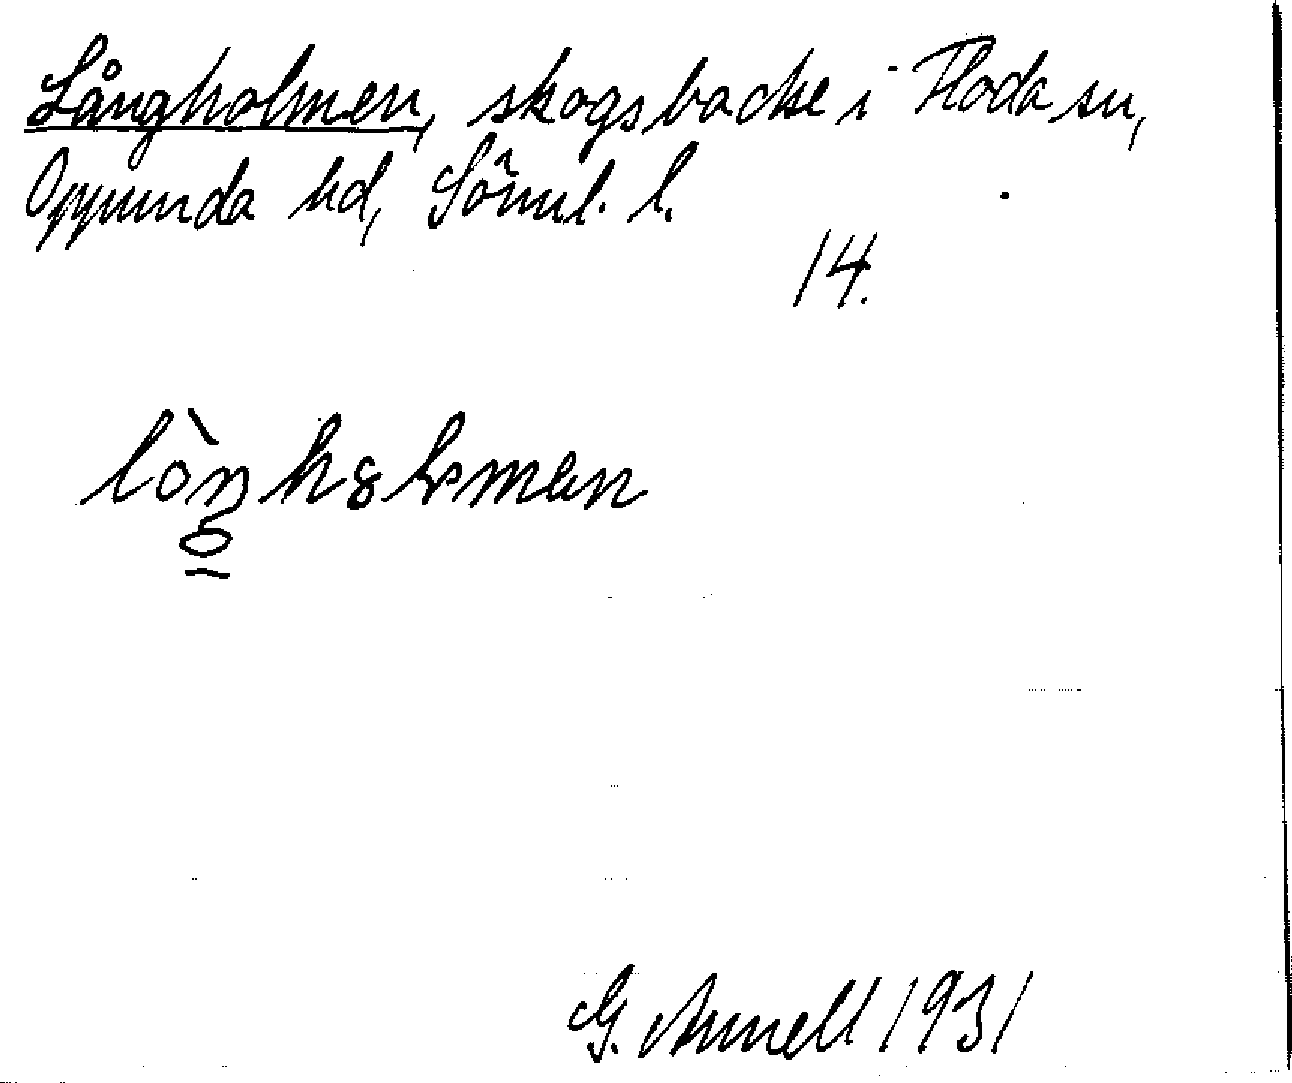 Långholmen, skogsbacke i Floda sn,
Oppunda hd, Sörml. l.
14.
G. Annell 1931